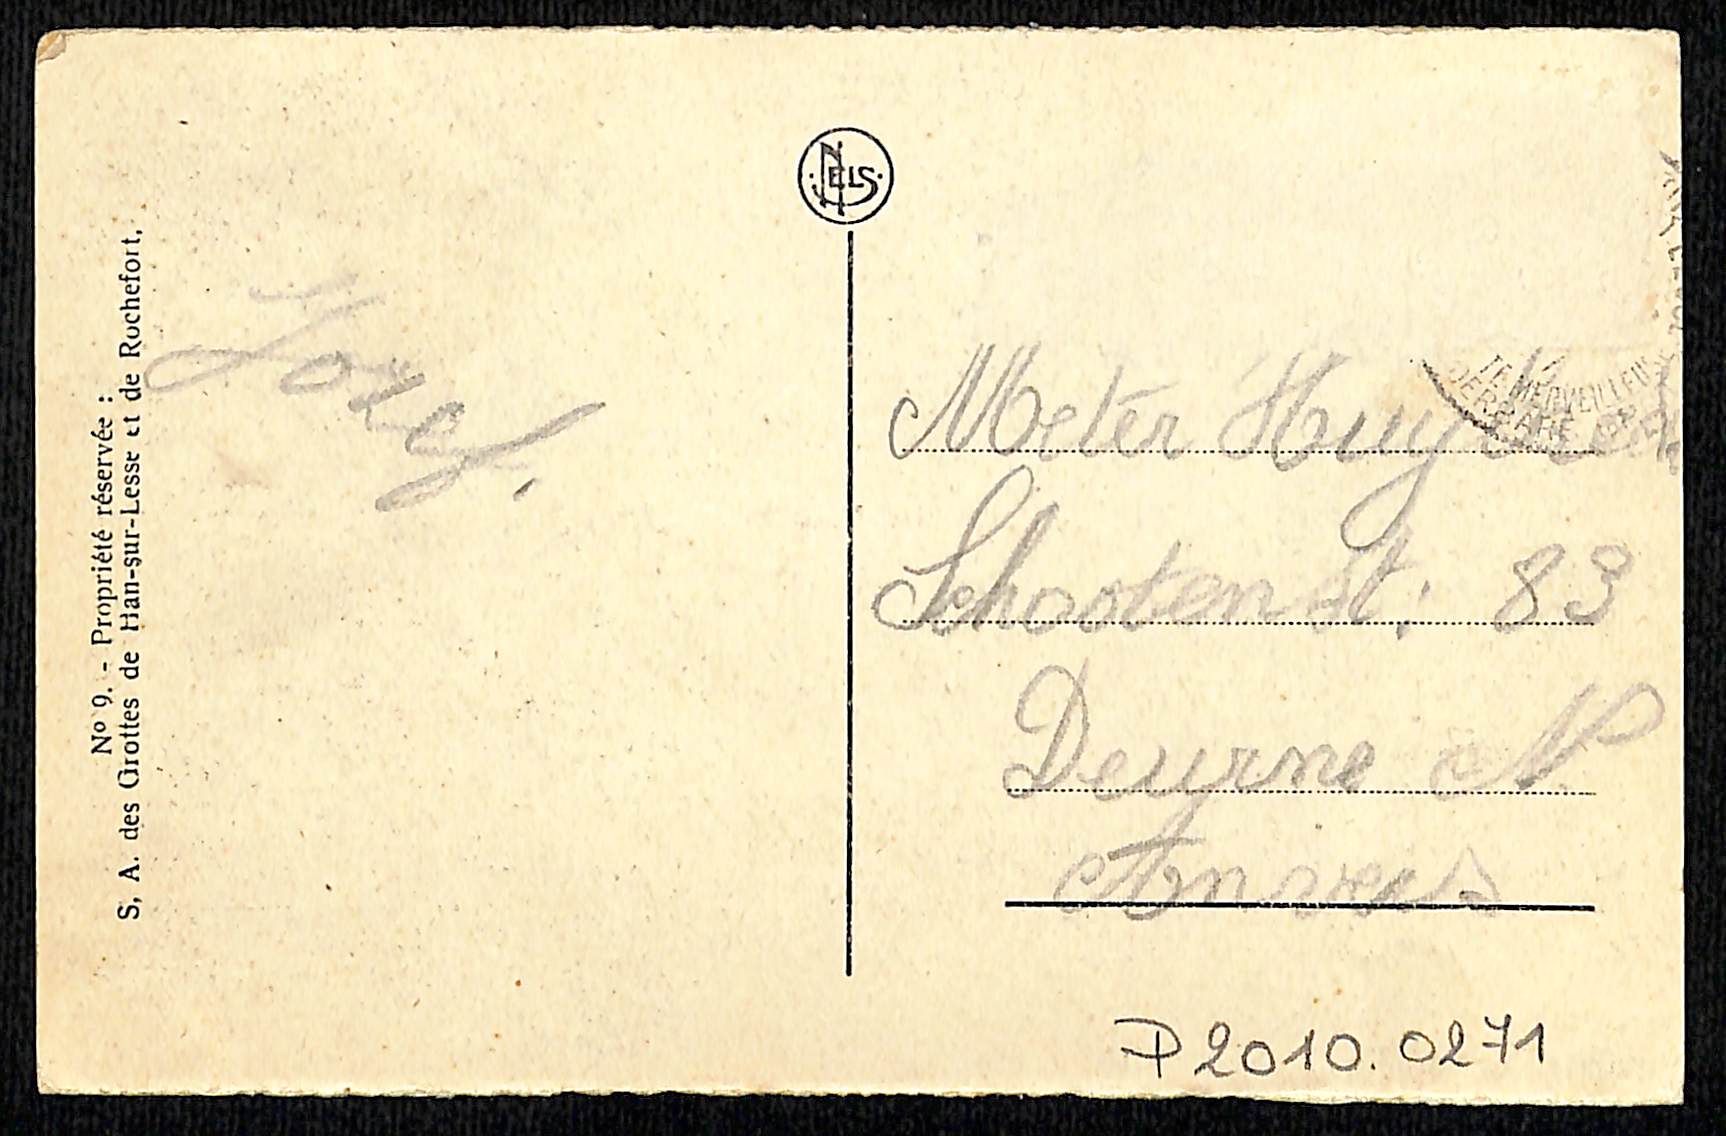 Nº 9. - Propriété réservée :
S. A. des Grottes de Han-sur-Lesse et de Rochefort.
NELS
Jozef.
Meter
Schootenst: 83
Deurne N.
Anvers
P 2010. 0271